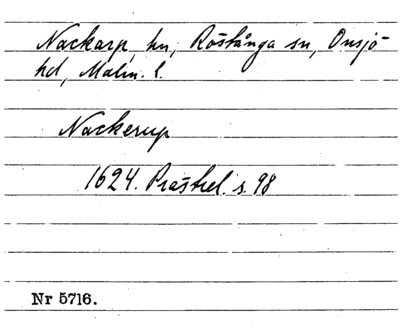 Nackarp, hn, Röstånga sn, Onsjö
hd, Malm. l.
Nackerup
1624. Prästrel. s. 98
Nr 5716.